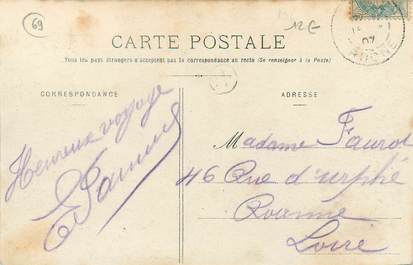 69
12€
CARTE POSTALE
Tous les pays étrangers n'acceptent pas la correspondance au recto (Se renseigner à la Poste)
CORRESPONDANCE
ADRESSE
Heureux voyage
Madame Faurot
46 Rue d'urphé
Roanne
Loire
07
RHONE